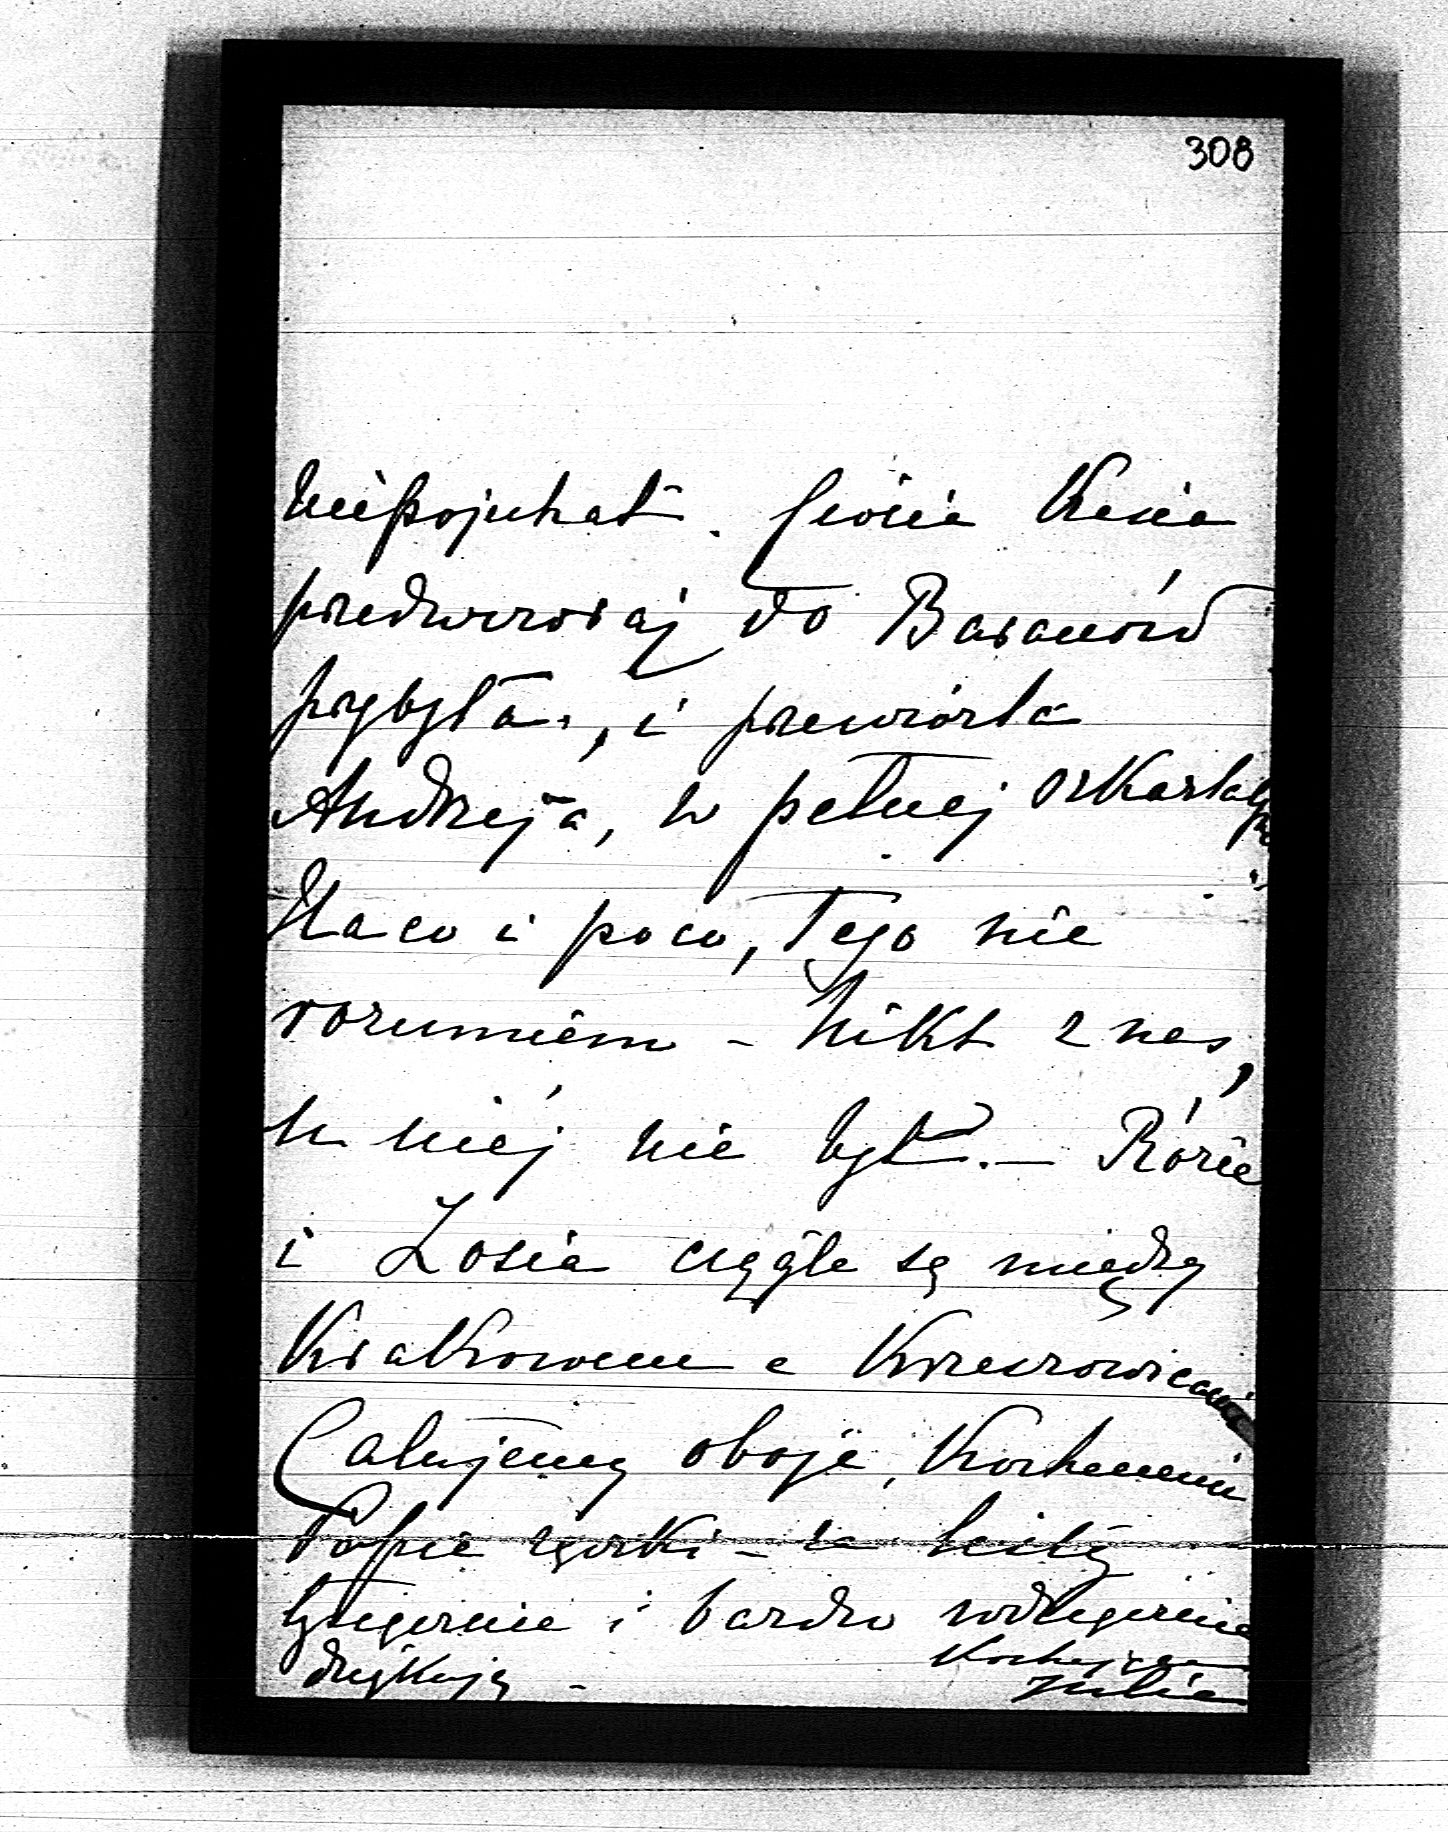 308
niepojechał. Ciocia Kasia
przedwczoraj do Baranów
przybyła, i przewiózła
Andrzeja, w pełnej szkarlatynie
Na co i poco, tego nie
rozumiem – Nikt z nas,
u niéj nie był. – Rózie
i Zosia ciągle są między
Krakowem a Krzeszowicami
Całujemy oboje, Kochanemu
Papie rączki – za
tysięcznie i bardzo wdzięcznie
dziękuję –
Kochająca
Julia